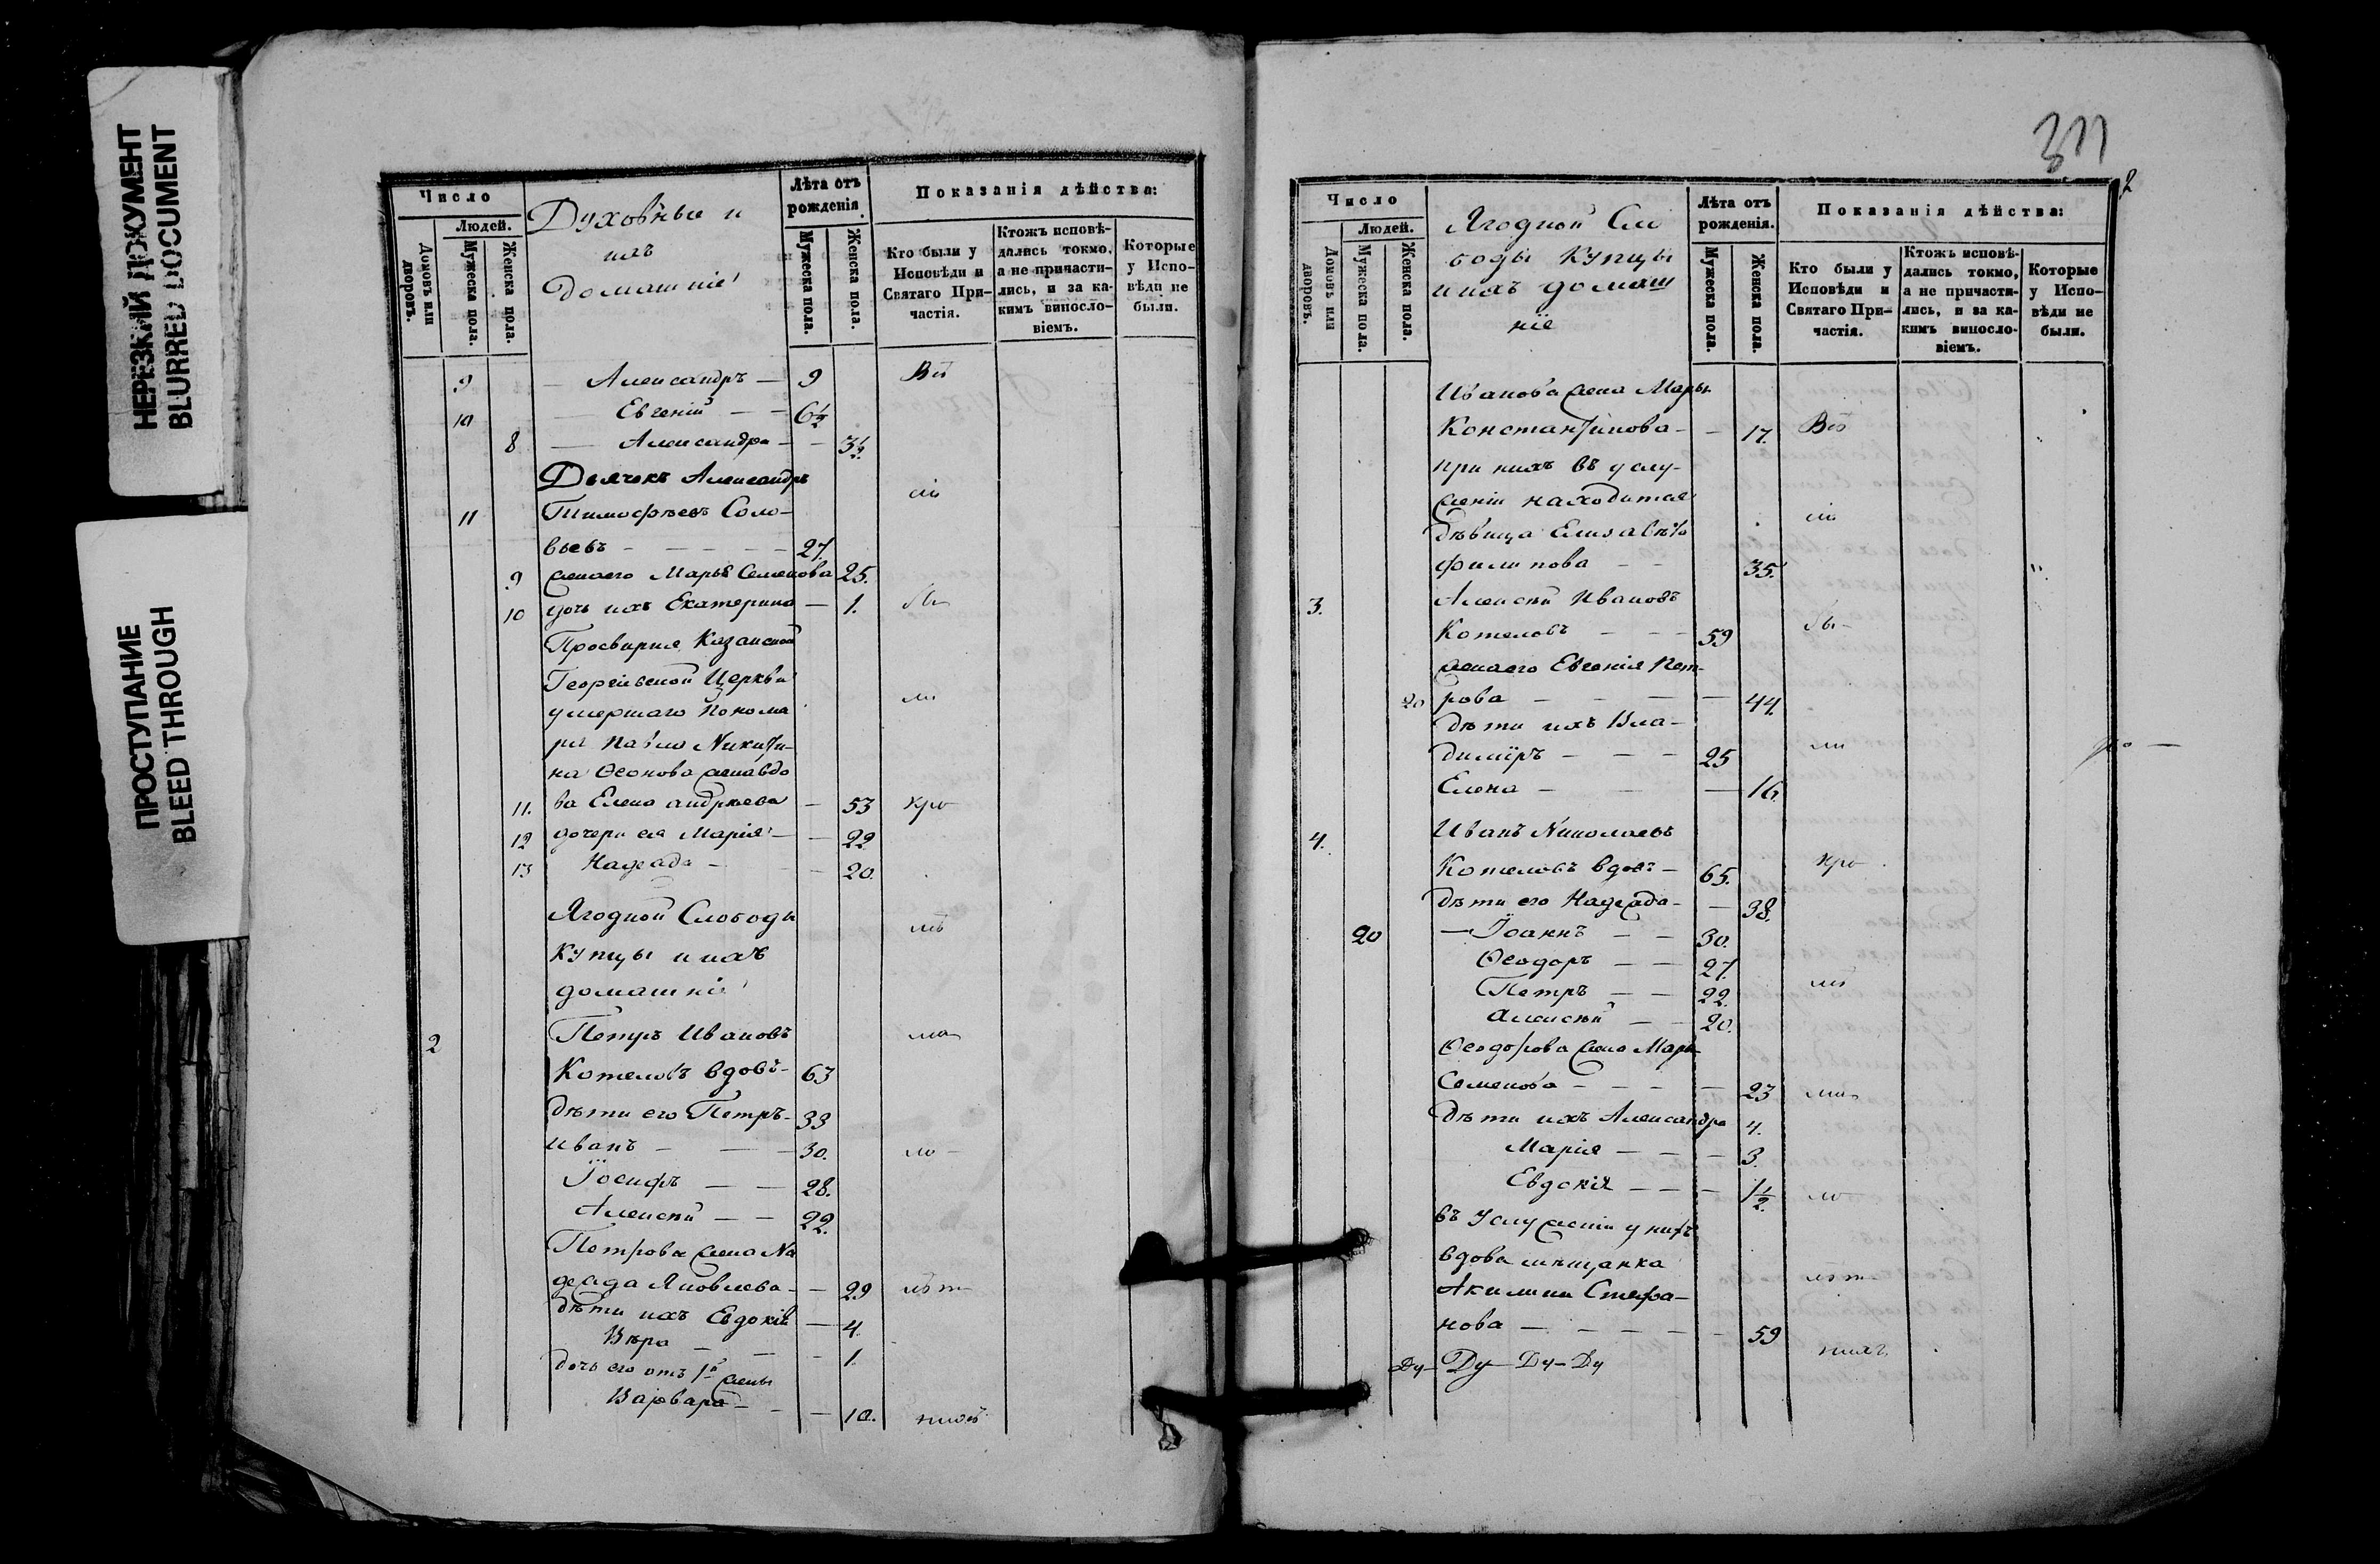 НЕРЕЗКИЙ ДОКУМЕНТ
BLURRED DOCUMENT
ПРОСТУПАНИЕ
BLEED THROUGH
Число
Людей.
Домовъ или дворовъ.
Мужеска пола.
Женска пола.
Духовные и
ихъ
домашніе
Лѣта отъ рожденія.
Мужеска пола.
Женска пола.
Показанія дѣйства:
Кто были у Исповѣди и Святаго При-частія.
Ктожъ исповѣ-дались токмо, а не причасти-лись, и за ка-кимъ винносло-віемъ.
Которые у Испо-вѣди не были.
9 — Александръ — 9
10 — Евгеній — — 6½
8 — Александра — — 3½
Дьячекъ Александръ
11 Тимофѣевъ Соло-
вьевъ — — — — — 27.
9 жена его Марья Семенова 25.
10 дочь ихъ Екатерина — 1.
Просвирня Казанской
Георгіевской Церкви
умершаго Понома
ря Павла Никити-
на Ѳеонова жена вдо
11. ва Елена Андреева — 53
12 дочери ея Марія — — 22
13 Надежда — — 20.
Ягодной Слободы
купцы и ихъ
домашніе
2 Петръ Ивановъ
Котеловъ вдовъ — 63
дѣти его Петръ — 33
Иванъ — — — 30.
Іосифъ — — 28.
Алексѣй — — 22.
Петрова жена На
дежда Яковлева — — 29
дѣти ихъ Евдокія — 4.
Вѣра — — — 1.
дочь его отъ 1й жены
Варвара — — — 10.
311
2
Число
Людей.
Домовъ или дворовъ.
Мужеска пола.
Женска пола.
Ягодной Сло
боды купцы
и ихъ домаш
ніе
Лѣта отъ рожденія.
Мужеска пола.
Женска пола.
Показанія дѣйства:
Кто были у Исповѣди и Святаго При-частія.
Ктожъ исповѣ-дались токмо, а не причасти-лись, и за ка-кимъ винносло-віемъ.
Которые у Испо-вѣди не были.
Иванова жена Марья
Константинова — — 17.
при нихъ въ услу-
женіи находится
дѣвица Елизавета
Филипова — — 35.
3. Алексѣй Ивановъ
Котеловъ — — — 59
жена его Евгенія Пет-
20 рова — — — — 44.
дѣти ихъ Вла-
диміръ — — — 25
Елена — — — 16.
4. Иванъ Николаевъ
Котеловъ вдовъ — 65.
дѣти его Надежда — — 38.
20 — Іоаннъ — — 30.
Ѳеодоръ — — 27.
Петръ — — 22.
Алексѣй — — 20.
Ѳеодорова жена Марья
Семенова — — — — 23
дѣти ихъ Александра 4.
Марія — — — 3.
Евдокія — — — 1½
въ услуженіи у нихъ
вдова мѣщанка
Акилина Стефа-
нова — — — — — 59